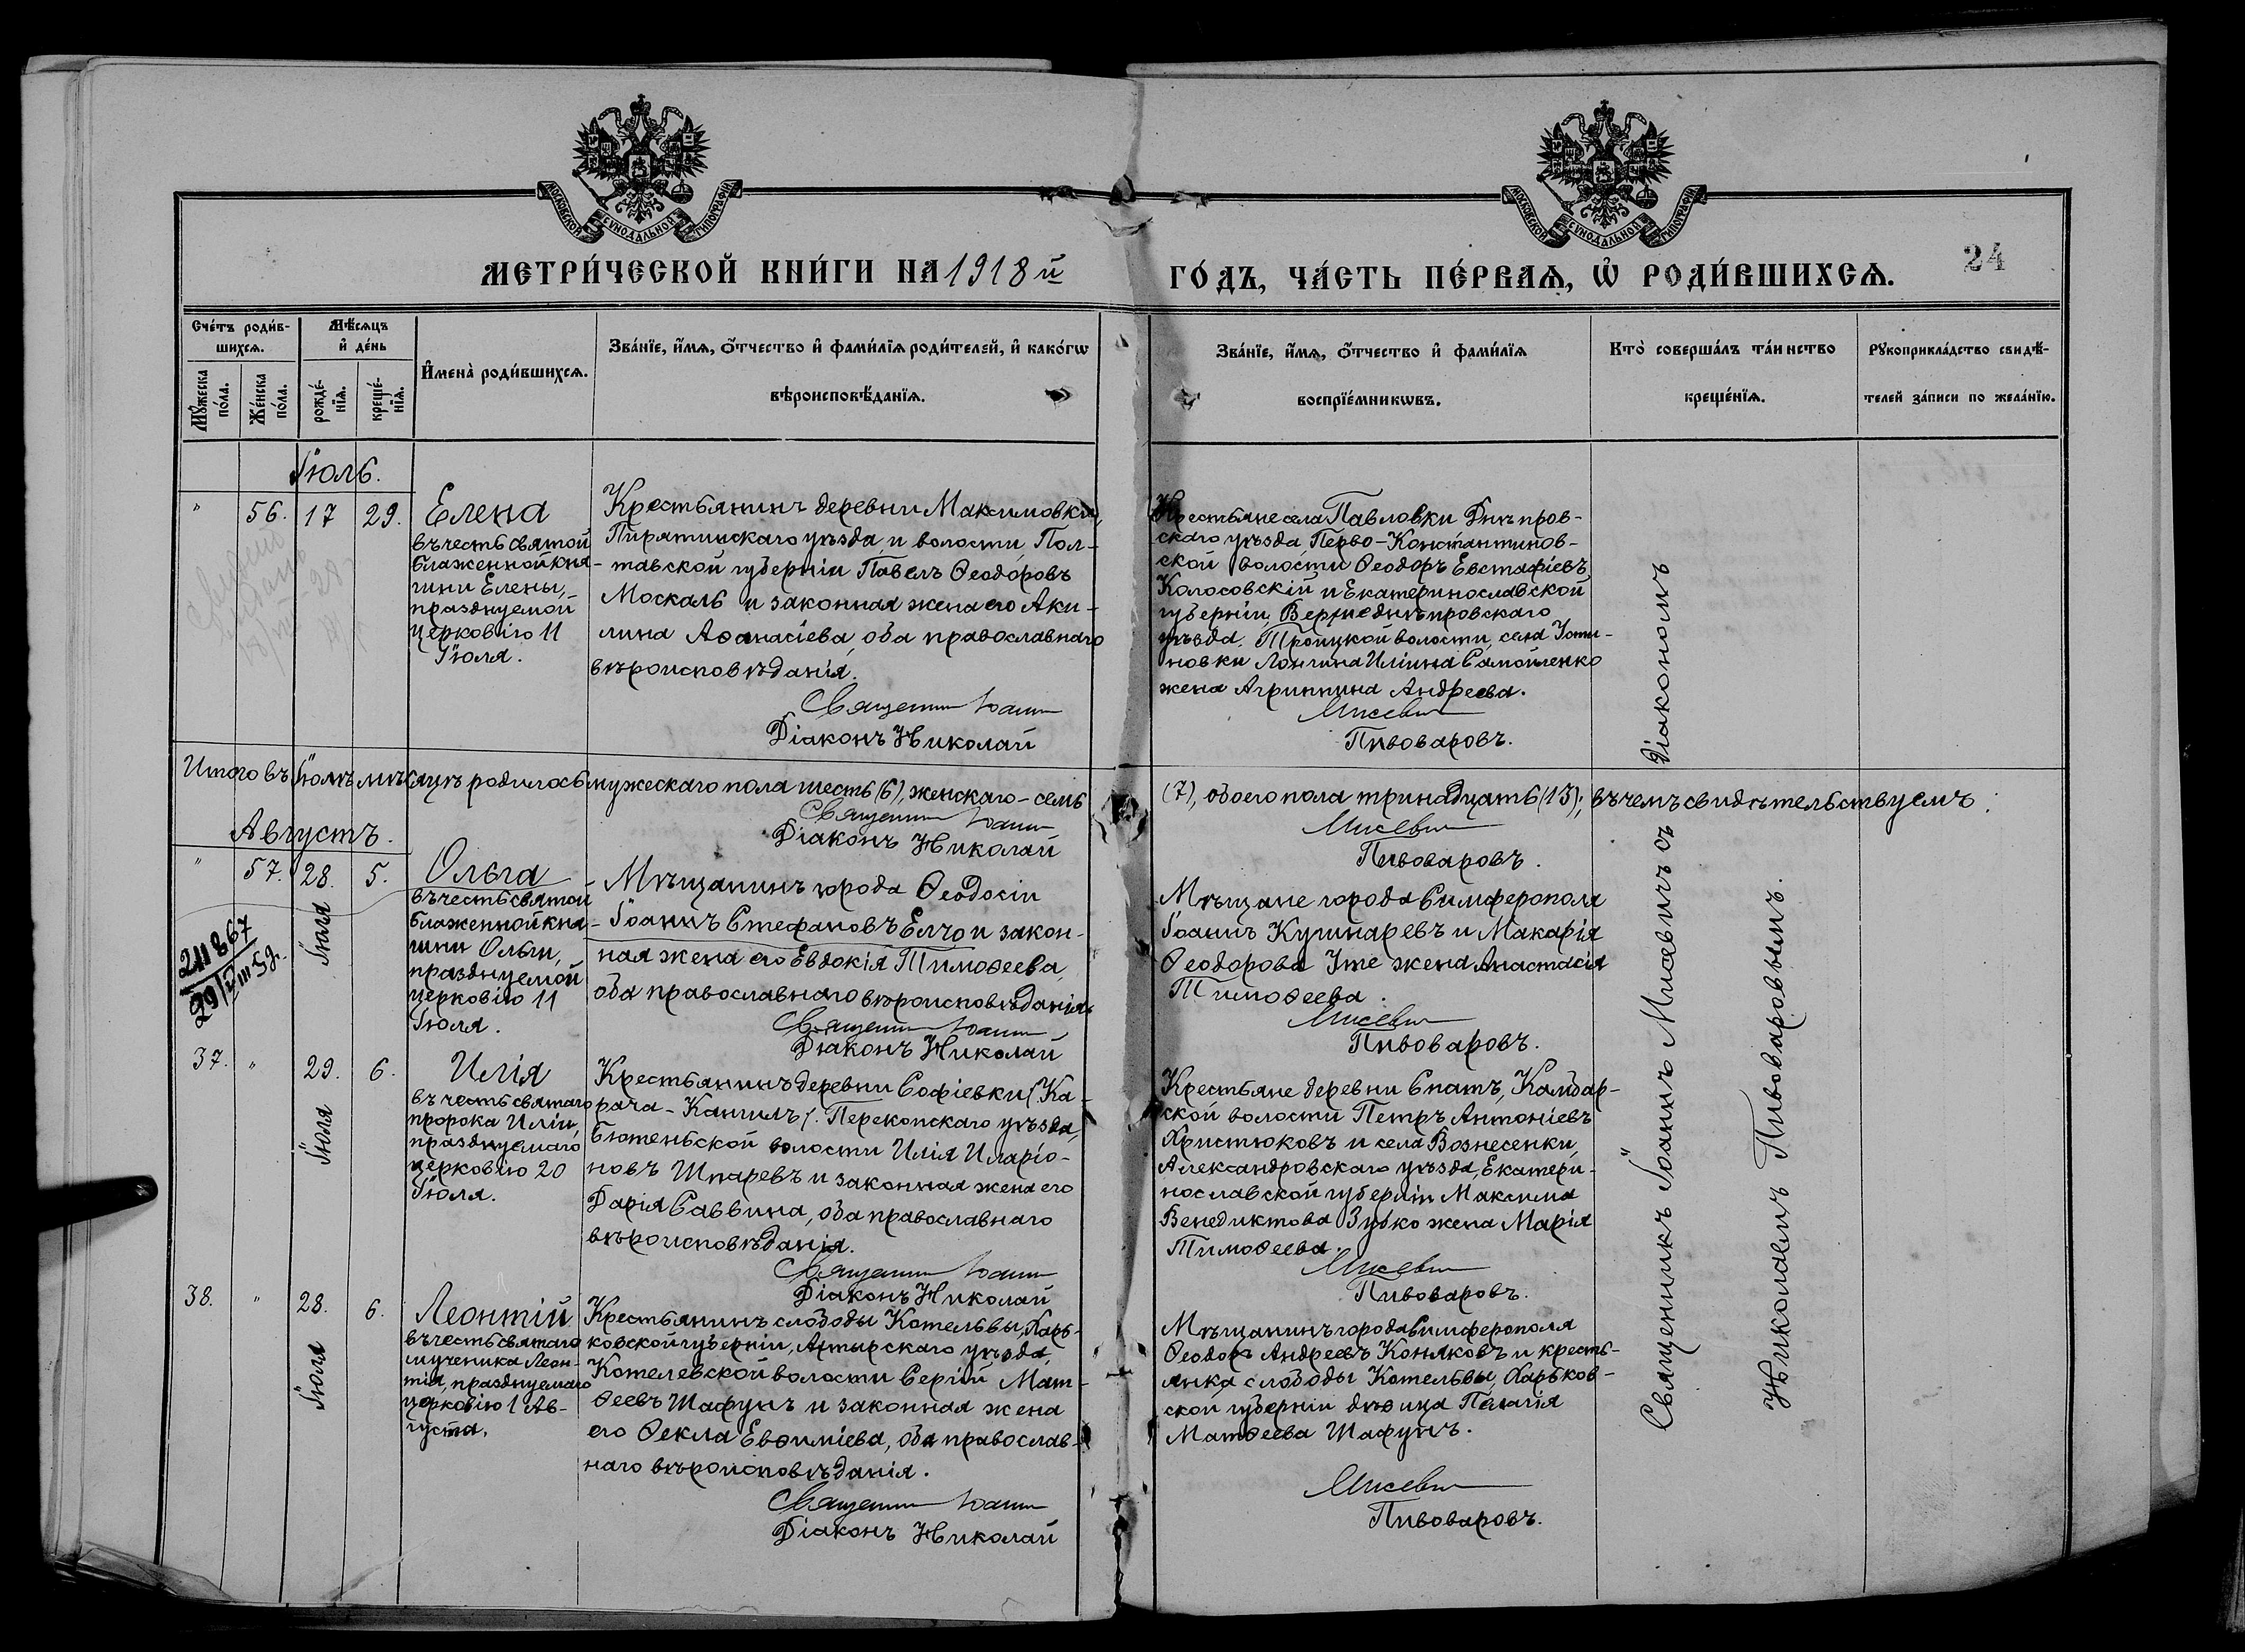 МОСКОВСКОЙ СѴНОДАЛЬНОЙ ТИПОГРАФІИ
МОСКОВСКОЙ СѴНОДАЛЬНОЙ ТИПОГРАФІИ
МЕТРИ́ЧЕСКОЙ КНИ́ГИ НА 1918 й
ГО́ДЪ, ЧА́СТЬ ПЕ́РВАѦ, Ѡ҆ РОДИ́ВШИХСѦ.
24
Сче́тъ роди́в-
шихсѧ.
Мѣ́сѧцъ
и҆ де́нь
Мꙋ́жеска
по́ла.
Же́нска
по́ла.
рожде́-
нїѧ.
креще́-
нїѧ.
И҆мена̀ роди́вшихсѧ.
Зва́нїе, и҆́мѧ, ѻ҆́тчество и҆ фами́лїѧ роди́телей, и҆ како́гѡ
вѣроисповѣ́данїѧ.
Зва́нїе, и҆́мѧ, ѻ҆́тчество и҆ фами́лїѧ
воспрїе́мникѡвъ.
Кто̀ соверша́лъ та́инство
креще́нїѧ.
Рꙋкоприкла́дство свидѣ́-
телей за́писи по жела́нїю.
Іюль.
" 56. 17 29.
Елена
въ честь святой
блаженной кня-
гини Елены,
празднуемой
церковію 11
Іюля.
Крестьянинъ деревни Максимовки,
Пирятинскаго уѣзда и волости, Пол-
тавской губерніи Павелъ Ѳеодоровъ
Москаль и законная жена его Аки-
лина Аѳанасіева, оба православнаго
вѣроисповѣданія.
Священникъ Іоаннъ
Діаконъ Николай
Крестьяне села Павловки Днѣпров-
скаго уѣзда, Перво-Константинов-
ской волости Ѳеодоръ Евстафіевъ
Колосовскій и Екатеринославской
губерніи, Верхнеднѣпровскаго
уѣзда, Троицкой волости, села Усти-
новки Лонгина Иліина Самойленко
жена Агриппина Андреева.
Мисевичъ
Пивоваровъ.
Итого въ Іюлѣ мѣсяцѣ родилось мужескаго пола шесть (6), женскаго – семь
(7), обоего пола тринадцать (13); въ чемъ свидѣтельствуемъ:
Священникъ Іоаннъ
Діаконъ Николай
Мисевичъ
Пивоваровъ.
Августъ.
" 57. 28. 5.
Іюля
211867
29/VIII 59.
Ольга
въ честь святой
блаженной кня-
гини Ольги,
празднуемой
церковію 11
Іюля.
Мѣщанинъ города Ѳеодосіи
Іоаннъ Стефановъ Елчо и закон-
ная жена его Евдокія Тимоѳеева,
оба православнаго вѣроисповѣданія.
Священникъ Іоаннъ
Діаконъ Николай
Мѣщане города Симферополя
Іоаннъ Кушнаревъ и Макарія
Ѳеодорова Уте жена Анастасія
Тимоѳеева.
Мисевичъ
Пивоваровъ.
37. " 29. 6.
Іюля
Илія
въ честь святаго
пророка Иліи,
празднуемаго
церковію 20
Іюля.
Крестьянинъ деревни Софіевки (Ка-
рача-Кангилъ). Перекопскаго уѣзда,
Бютеньской волости Илія Иларіо-
новъ Шпаревъ и законная жена его
Дарія Саввина, оба православнаго
вѣроисповѣданія.
Священникъ Іоаннъ
Діаконъ Николай
Крестьяне деревни Спатъ, Камбар-
ской волости Петръ Антоніевъ
Христюковъ и села Вознесенки,
Александровскаго уѣзда, Екатери-
нославской губерніи Максима
Венедиктова Зубко жена Марія
Тимоѳеева.
Мисевичъ
Пивоваровъ.
38. " 28. 6.
Іюля
Леонтій
въ честь святаго
мученика Леон-
тія, празднуемаго
церковію 1 Ав-
густа.
Крестьянинъ слободы Котельвы, Харь-
ковской губерніи, Ахтырскаго уѣзда,
Котелевской волости Сергій Мат-
ѳеевъ Шафунъ и законная жена
его Ѳекла Евѳиміева, оба православ-
наго вѣроисповѣданія.
Священникъ Іоаннъ
Діаконъ Николай
Мѣщанинъ города Симферополя
Ѳеодоръ Андреевъ Коняковъ и кресть-
янка слободы Котельвы, Харьков-
ской губерніи дѣвица Пелагія
Матѳеева Шафунъ.
Мисевичъ
Пивоваровъ.
Священникъ Іоаннъ Мисевичъ съ Діакономъ
Николаемъ Пивоваровымъ.